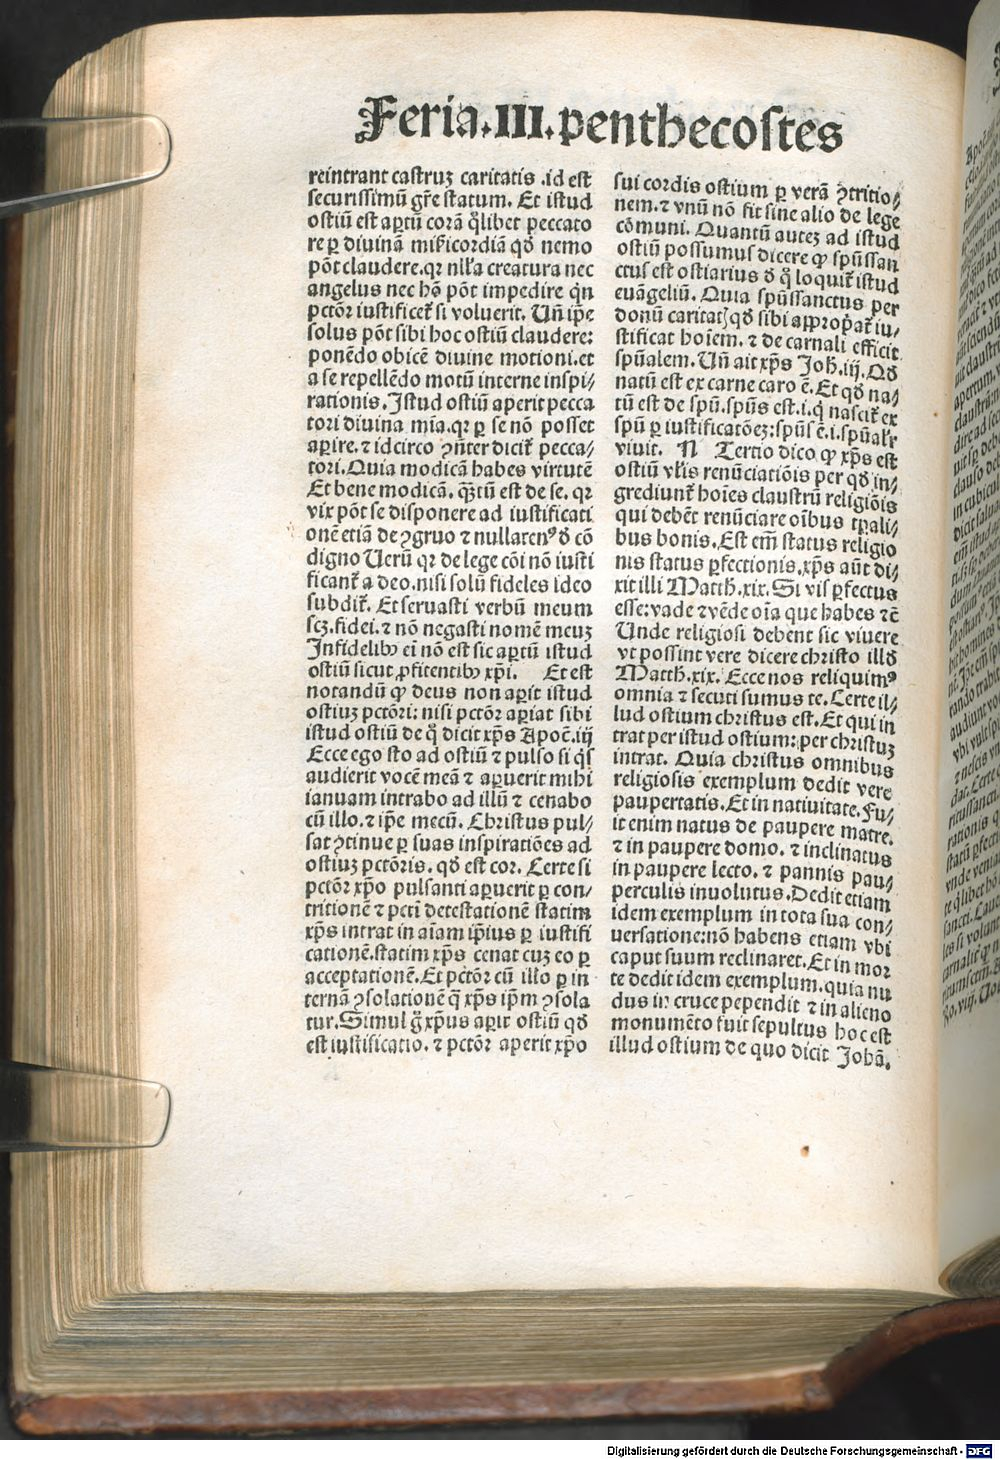 Feria.III.penthecostes
reintrant castruꝫ caritatis .id est
securissimū gr̄e statum. Et istud
ostiū est apertū corā qͦlibet peccato
re ꝑ diuinā mīẜicordiā qđ nemo
pōt claudere.qꝛ nulla creatura nec
angelus nec hō pōt impedire qͥn
pctōr iustificet̄ si voluerit. Uñ ip̄e
solus pōt sibi hoc ostiū claudere:
ponēdo obicē diuine motioni.et
a se repellēdo motū interne inspi⸗
rationis. Istud ostiū aperit pecca
tori diuina mia.qꝛ ꝑ se nō posset
aꝑire.⁊ idcirco ꝯñter dicit̄ pecca⸗
tori.Quia modicā habes virtutē
Et bene modicā. qꝫtū est de se. qꝛ
vix pōt se disponere ad iustificati
onē etiā de ꝯgruo ⁊ nullatenꝰ đ cō
digno Uerū qꝛ de lege cōi nō iusti
ficant̄ a deo.nisi solū fideles ideo
subdit̄. Et seruasti verbū meum
scꝫ.fidei.⁊ nō negasti nomē meuꝫ
Infidelibꝰ eī nō est sic aꝑtū istud
ostiū sicut ꝓfitentibꝰ xp̄i. Et est
notandū ꝙ deus non aꝑit istud
ostiuꝫ pctōri: nisi pctōr aꝑiat sibi
istud ostiū de qͦ dicit xp̄s Apoc̄.iij
Ecce ego sto ad ostiū ⁊ pulso si qͥs
audierit vocē meā ⁊ aꝑuerit mihi
ianuam intrabo ad illū ⁊ cenabo
cū illo.⁊ ip̄e mecū. Christus pul⸗
sat ꝯtinue ꝑ suas inspiratiōes ad
ostiuꝫ pctōris. qđ est cor. Certe si
pctōr xp̄o pulsanti aꝑuerit ꝑ con⸗
tritionē ⁊ pcti detestationē statim
xp̄s intrat in aīam ip̄ius ꝑ iustifi
cationē.statim xp̄s cenat cuꝫ eo ꝑ
acceptationē.Et pctōr cū illo ꝑ in
ternā ꝯsolationē qͣ xp̄s ip̄m ꝯsola
tur.Simul gͦ xp̄us aꝑit ostiū qđ
est iustificatio. ⁊ pctōr aperit xp̄o
sui cordis ostium ꝑ verā ꝯtritio⸗
nem.⁊ vnū nō fit sine alio de lege
cōmuni. Quantū auteꝫ ad istud
ostiū possumus dicere ꝙ spūssan
ctus est ostiarius đ qͦ loquit̄ istud
euāgeliū. Quia spūssanctus per
donū caritatꝭ qđ sibi appropͥat̄ iu⸗
stificat hoīem. ⁊ de carnali efficit
spūalem. Uñ ait xp̄s Joh̄.iij. Qđ
natū est ex carne caro ē. Et qđ na⸗
tū est de spū.spūs est.i.qͥ nascit̄ ex
spū ꝑ iustificatōeꝫ:spūs ē.i.spūalr̄
viuit. N Tertio dico ꝙ xp̄s est
ostiū vl̄is renūciatiōis per qđ in⸗
grediunt̄ hoīes claustrū religiōis
qui debēt renūciare oībus tꝑali⸗
bus bonis. Est em̄ status religio
nis status ꝑfectionis. xp̄s aūt di⸗
xit illi Matth̄.xix. Si vis ꝑfectus
esse: vade ⁊ vēde oīa que habes ⁊c̄
Unde religiosi debent sic viuere
vt possint vere dicere christo illđ
Matth̄.xix. Ecce nos reliquimꝰ
omnia ⁊ secuti sumus te. Certe il⸗
lud ostium christus est. Et qui in
trat per istud ostium: per christuꝫ
intrat. Quia christus omnibus
religiosis exemplum dedit vere
paupertatis. Et in natiuitate. Fu⸗
it enim natus de paupere matre.
⁊ in paupere domo. ⁊ inclinatus
in paupere lecto. ⁊ pannis pau⸗
perculis inuolutus. Dedit etiam
idem exemplum in tota sua con⸗
uersatione: nō habens etiam vbi
caput suum reclinaret. Et in mor
te dedit idem exemplum. quia nu
dus in cruce pependit ⁊ in alieno
monumēto fuit sepultus hoc est
illud ostium de quo dicit Johā.
Digitalisierung gefördert durch die Deutsche Forschungsgemeinschaft - DFG